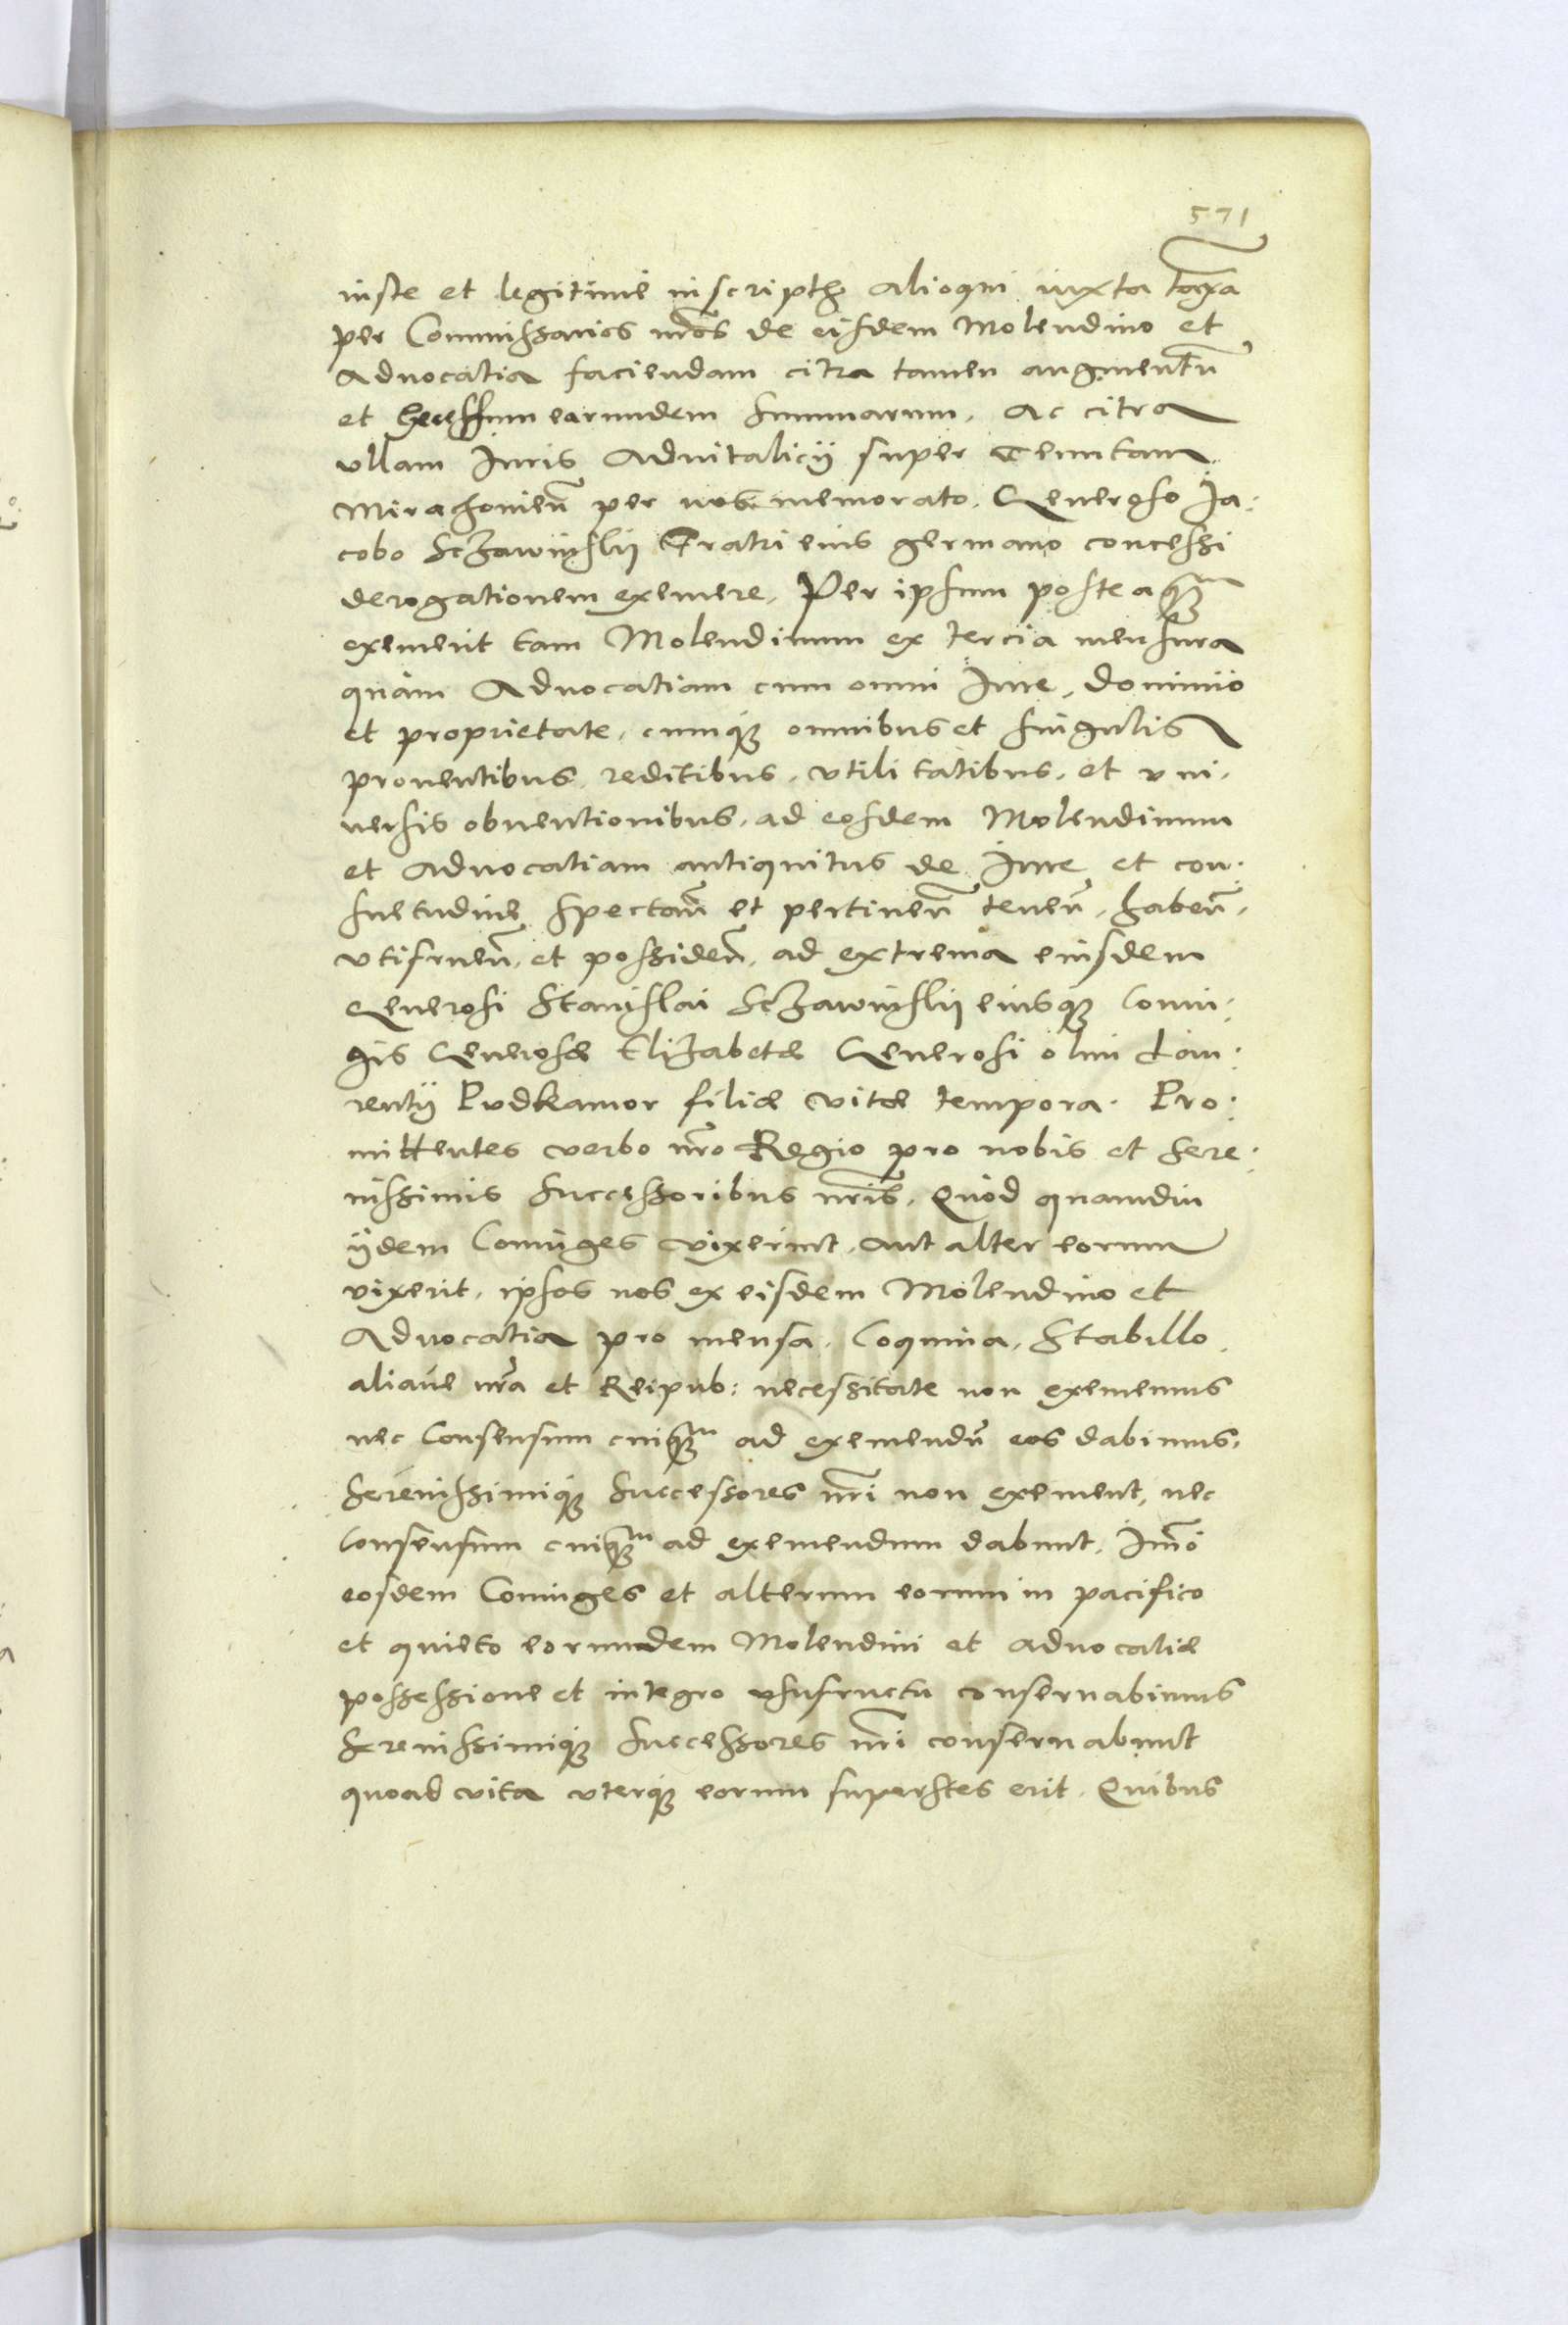 571
iuste et legitime inscriptis alioqui iuxta taxã
per Commissarios nr̃os de eisdem Molendino et
Aduocatia faciendam citra tamen augmentũ
et excessum earumdem summarum, Ac citra
vllam Iuris Aduitalicij super Tenutam
Mirachouien̄ per nos memorato Generoso Ia:
cobo Sczawinslij Fratri eius germano concessi
derogationem exemere, Per ipsum posteaq̃m
exemerit tam Molendinum ex tercia mensura
quàm Aduocatiam cum omni Iure, dominio
et proprietate, cumq̃ omnibus et singulis
prouentibus, reditibus, vtilitatibus, et vni,
uersis obuentionibus, ad eosdem Molendinum
et Aduocatiam antiquitus de Iure et con:
suetudine spectan̄ et pertinen̄ tenen̄, haben̄,
vtifruen̄, et possiden̄, ad extrema eiusdem
Generosi Stanislai Sczawinslij eiusq̃ Coniu:
gis Generosæ Elizabetæ Generosi olim Lau:
rentij Pudkamor filiæ vitæ tempora. Pro:
mittentes verbo nr̃o Regio pro nobis et Sere:
nissimis Successoribus nr̃is, Quòd quamdiu
ijdem Coniuges vixerint, aut alter eorum
vixerit, ipsos nos ex eisdem Molendino et
Aduocatia pro mensa, Coquina, Stabullo,
aliaue nr̃a et Reipub: necessitate non exememus
nec Consensum cuiq̃m ad exemendũ eos dabimus,
Serenissimiq̃ Successores nr̃i non exement, nec
Consensum cuiq̃m ad exemendum dabunt, Im̃o
eosdem Coniuges et alterum eorum in pacifico
et quieto eorumdem Molendini et aduocatiæ
possessione et integro vsufructu conseruabimus
Serenissimiq̃ Successores nr̃i conseruabunt
quoad vita vterq̃ eorum superstes erit. Quibus